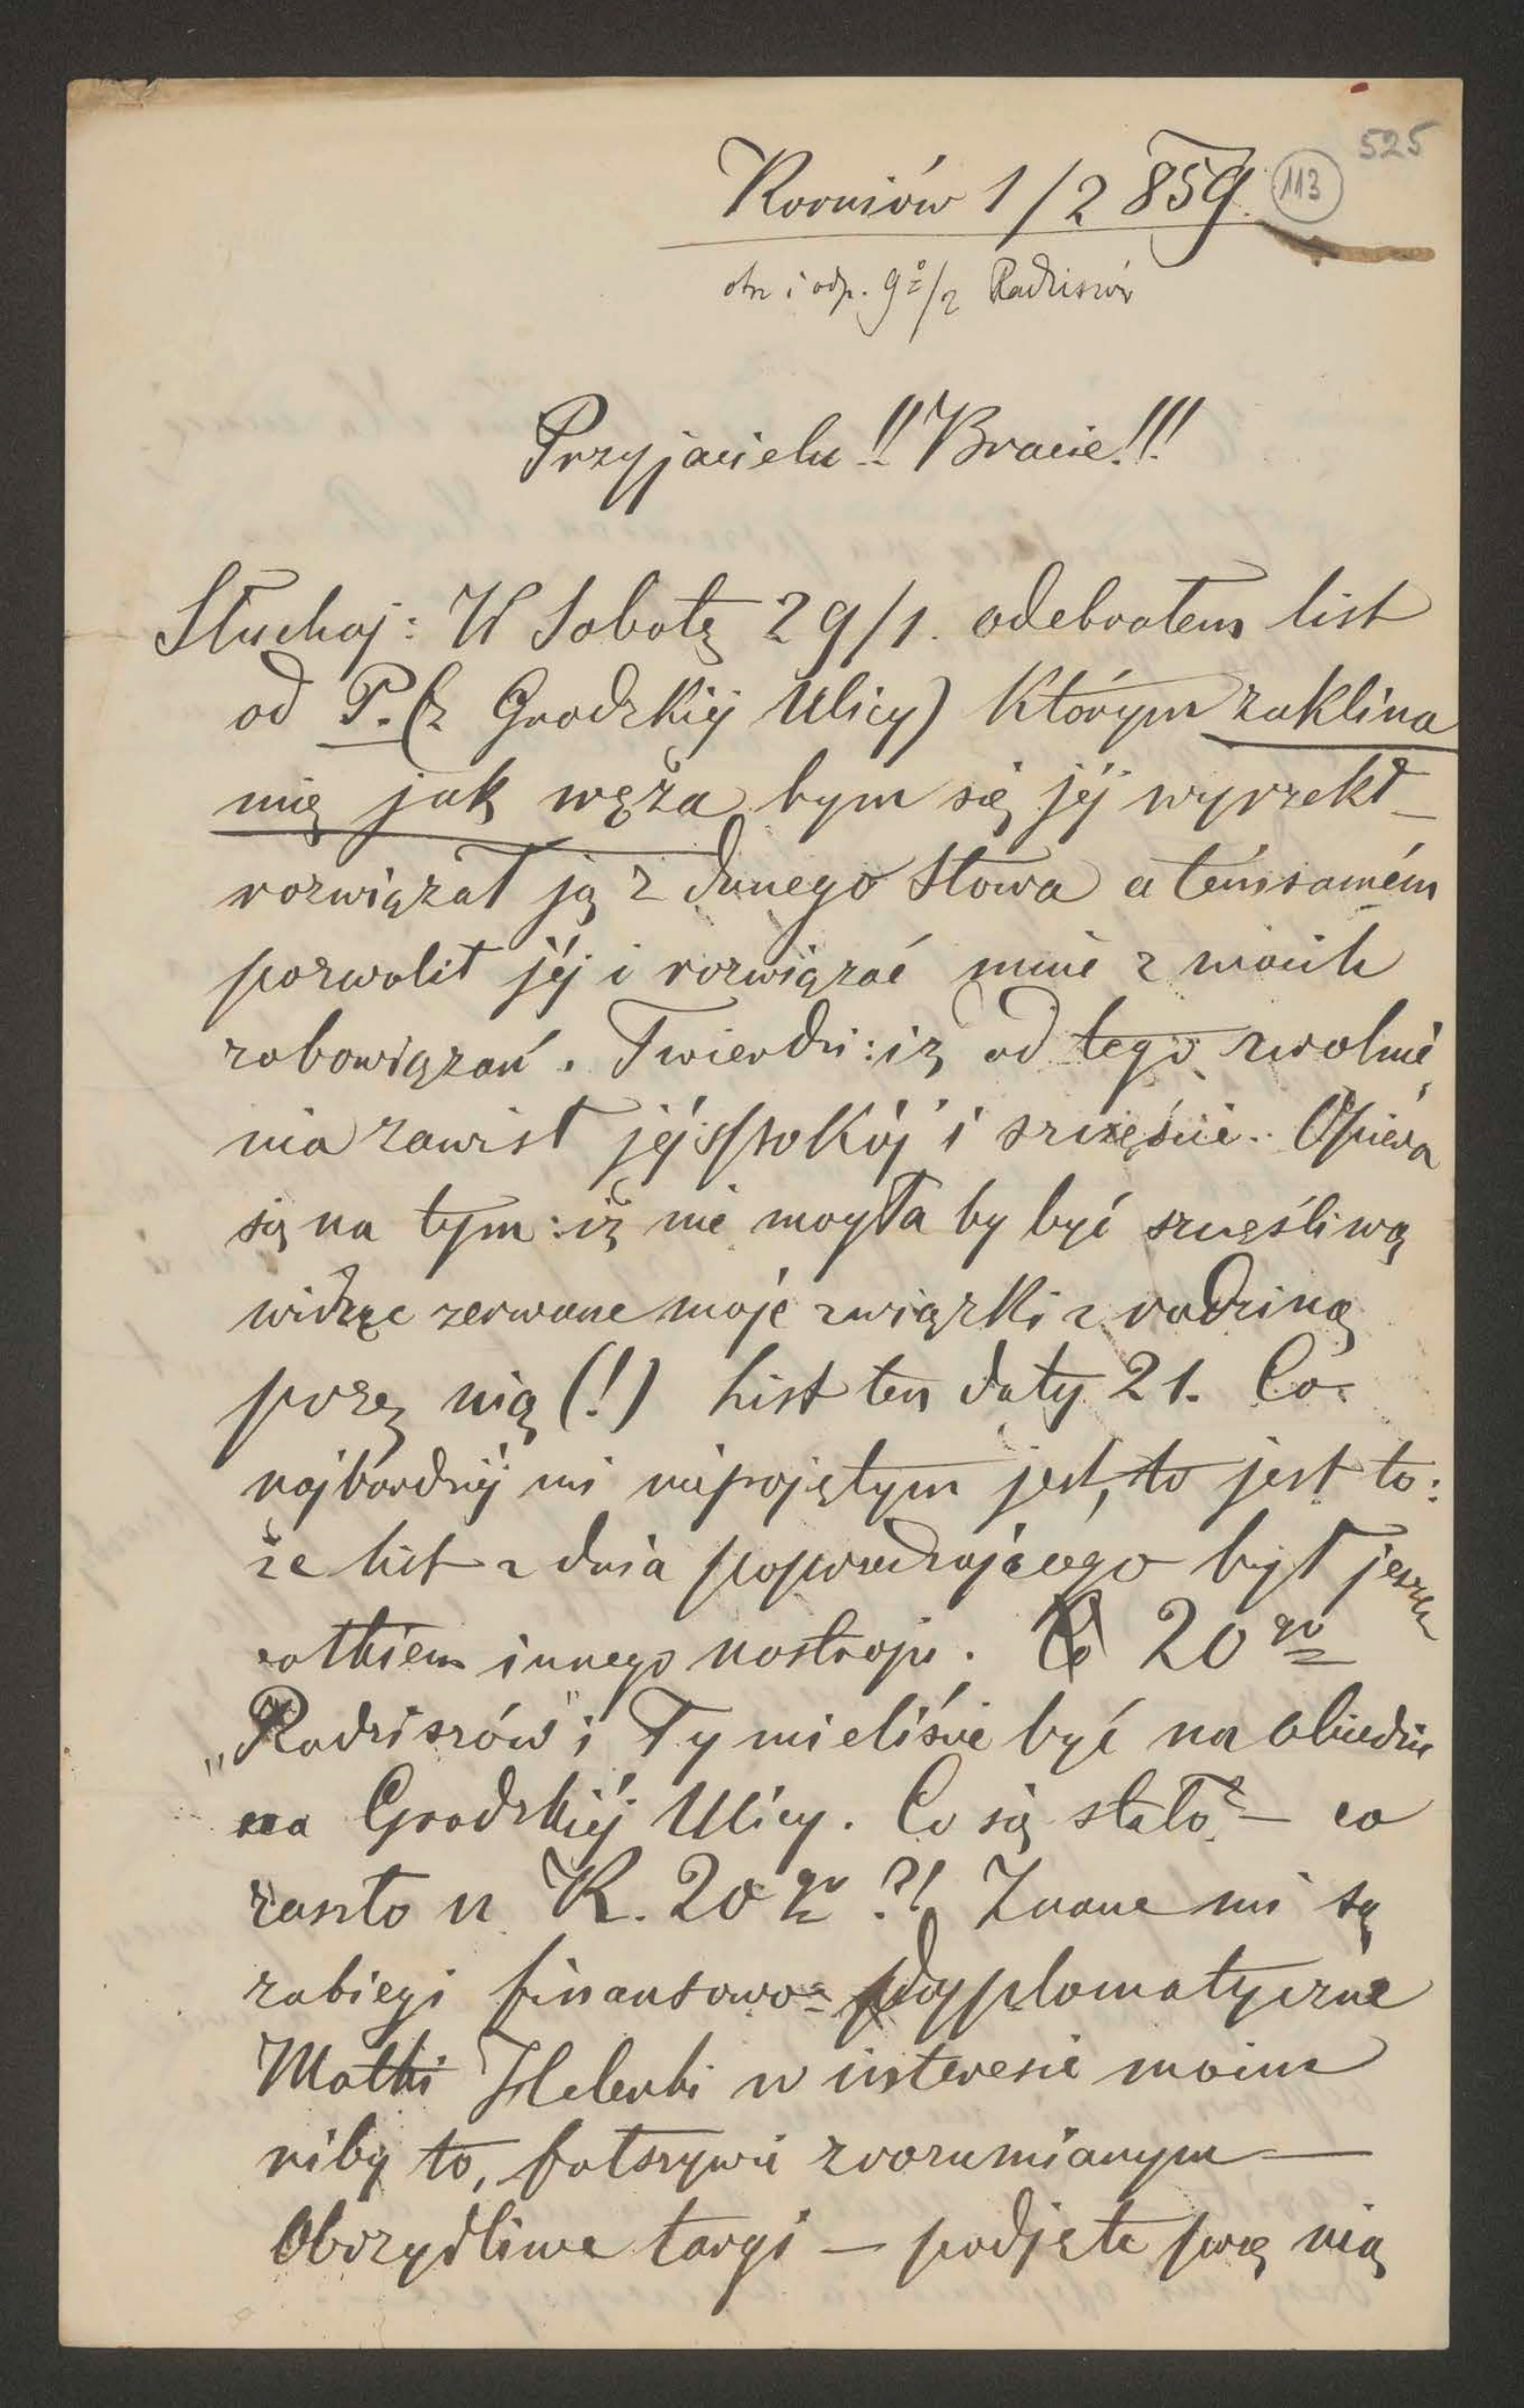 525
113
Kroniów 1/2 859.
otrz i odp. 9º/2 Radziszów
Przyjacielu!! Bracie!!!
Słuchaj: W Sobotę 29/1. odebrałem list
od P. (z Grodzkiéj Ulicy) którym zaklina
mię jak węża bym się jéj wyrzekł –
rozwiązał ją z danego Słowa a témsamém
pozwolił jéj i rozwiązać mnie z moich
zobowiązań. Twierdzi: iż od tego zwolnie
nia zawisł jéj spokój i szczęście. Opiera
się na tym: iż nie mogła by być szczęśliwą
widząc zerwane moje związki z rodziną
przez nią (!) List ten daty 21. Co
najbardziéj mi niepojętym jest, to jest to:
że list z dnia poprzedzającego był jeszcze
całkiem innego nastroju. 20go
„Radziszów" i Ty mieliście być na obiedzie
na Grodzkiéj Ulicy. Co się stało? – co
zaszło u K. 20go ?! Znane mi są
zabiegi finansowo = dyplomatyczne
Matki Helenki w interesie moim
niby to, fałszywie zrozumianym —
Obrzydliwe targi — podjęte przez nią